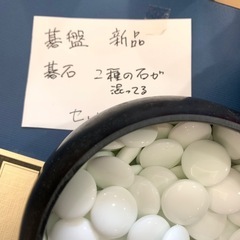 碁盤 新品
碁石 2種の石が
混ってる
セッ